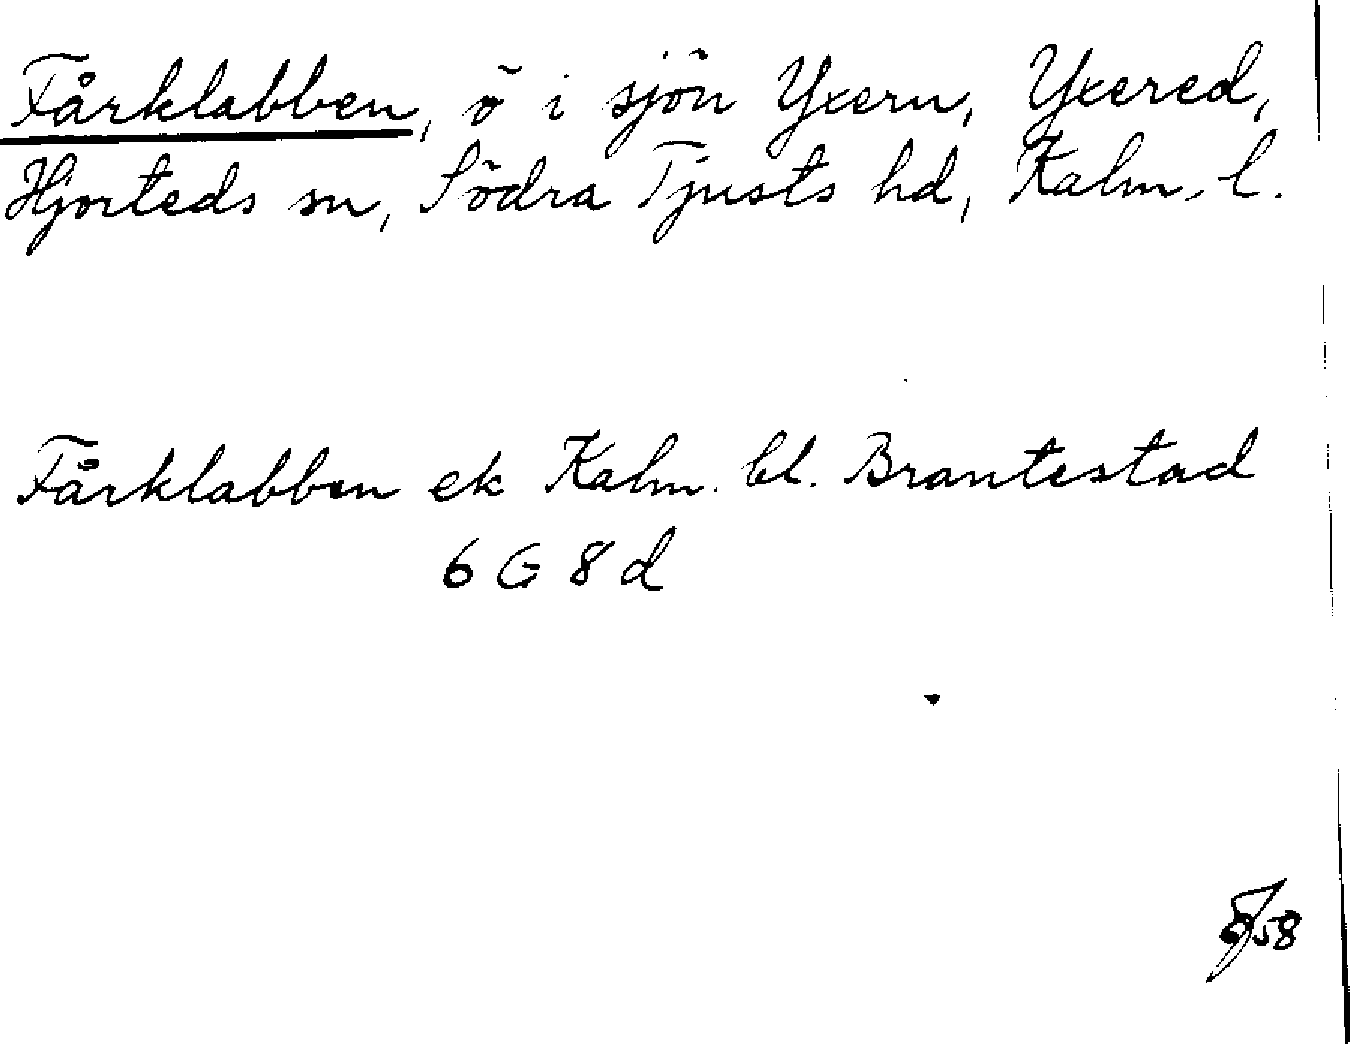 Fårklabben, ö i sjön Yxern, Yxered,
Hjorteds sn, Södra Tjusts hd, Kalm. l.
Fårklabben ek Kalm. bl. Brantestad
6 G 8 d